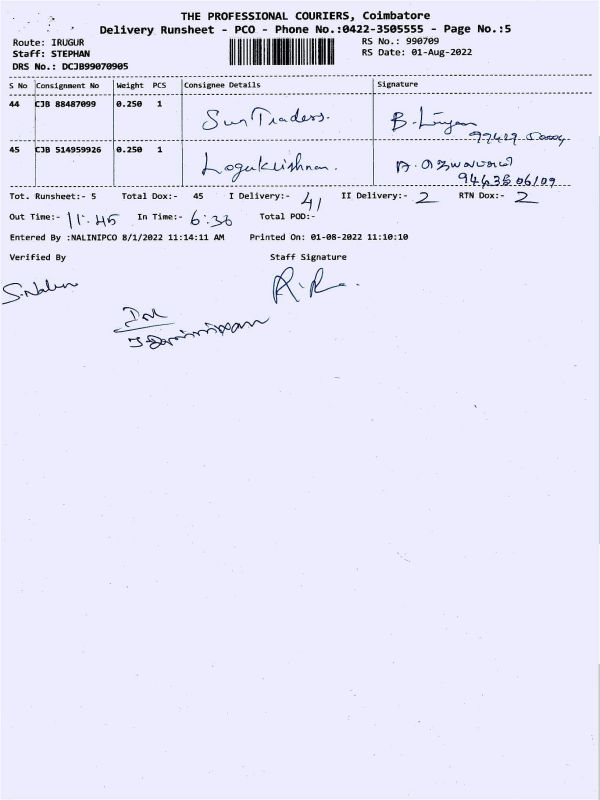 THE PROFESSIONAL COURIERS, Coimbatore
Delivery Runsheet - PCO - Phone No.:0422-3505555 - Page No.:5
Route: IRUGUR RS No.: 990709
Staff: STEPHAN RS Date: 01-Aug-2022
DRS No.: DCJB99070905
S No Consignment No Weight PCS Consignee Details Signature
44 CJB 88487099 0.250 1 Sun Traders.
45 CJB 514959926 0.250 1 Logukrishnan.
Tot. Runsheet:- 5 Total Dox:- 45 I Delivery:- 41 II Delivery:- 2 RTN Dox:- 2
Out Time:- 11:45 In Time:- 6:36 Total POD:-
Entered By :NALINIPCO 8/1/2022 11:14:11 AM Printed On: 01-08-2022 11:10:10
Verified By Staff Signature